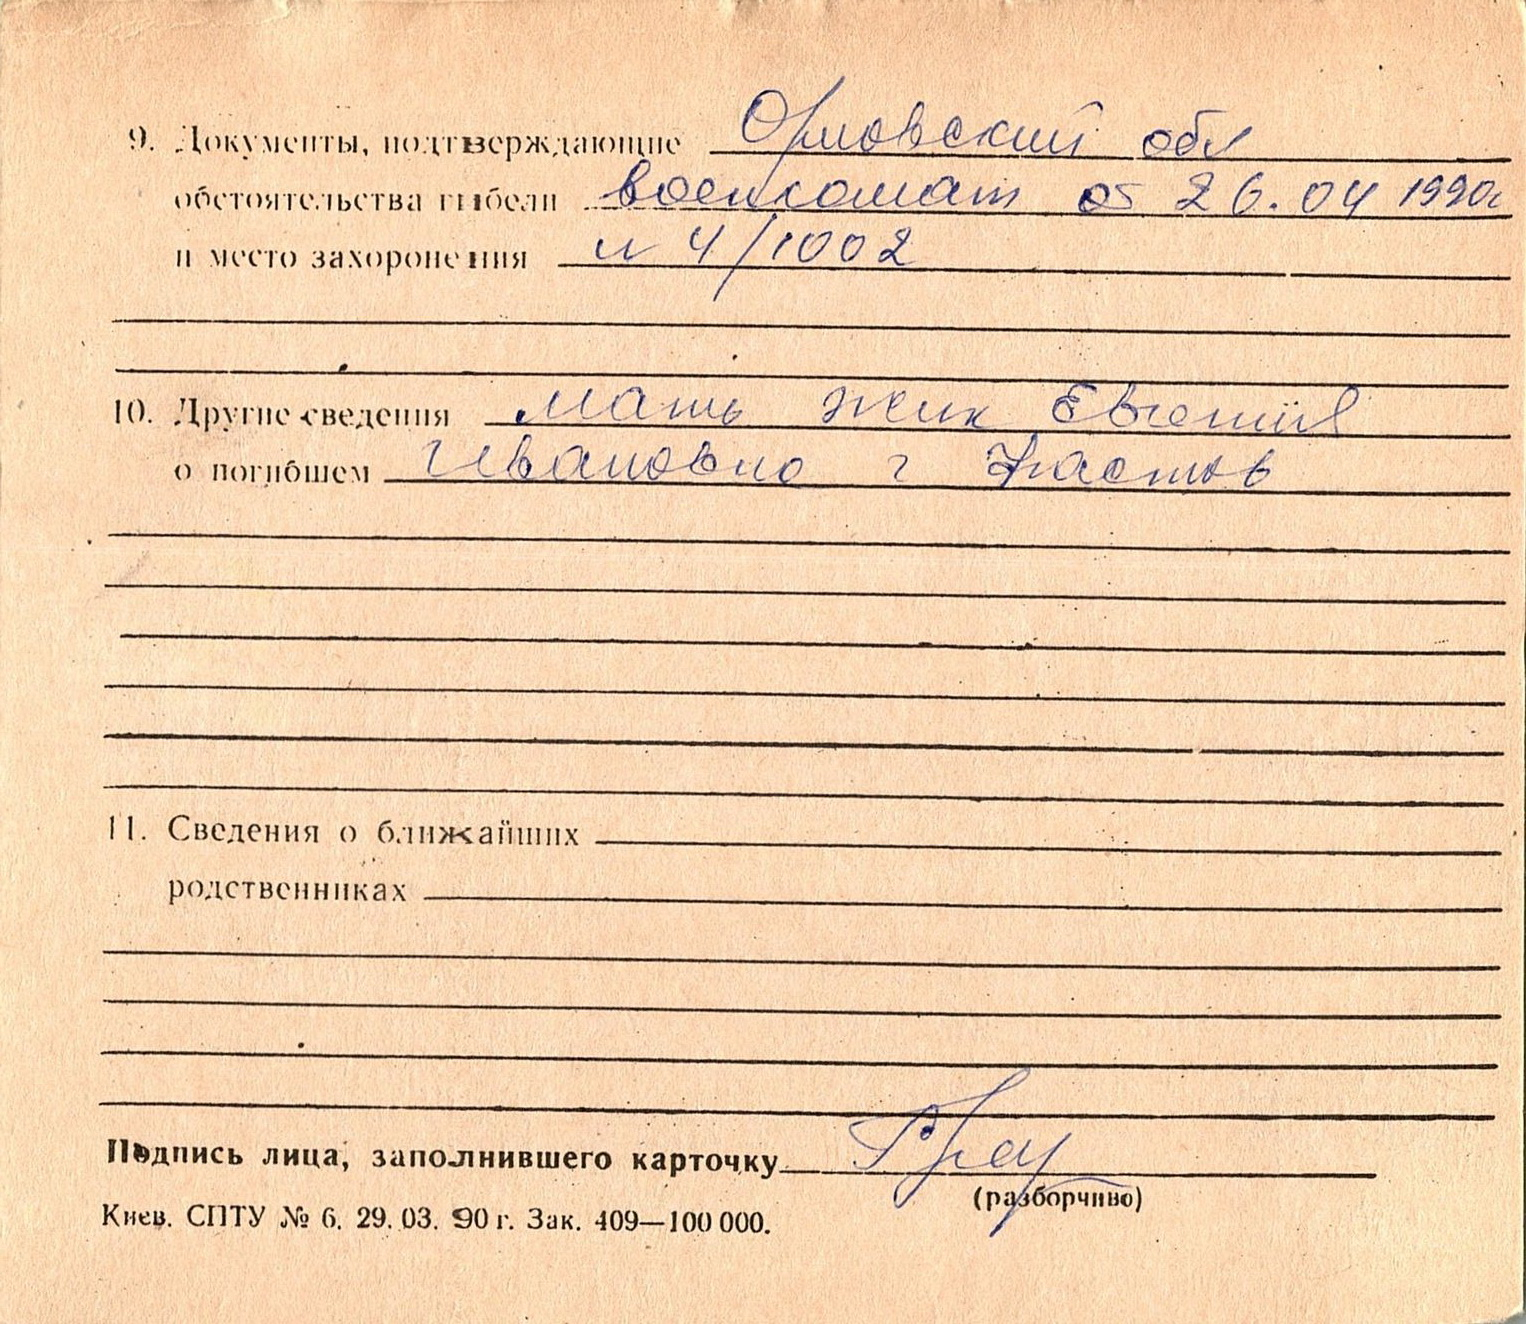 9. Документы, подтверждающие Орловский обл
обстоятельства гибели военкомат от 26.04 1990г
и место захоронения н 4/1002
10. Другие сведения мать Жук Евгения
о погибшем Ивановна г Фастов
11. Сведения о ближайших
родственниках
Подпись лица, заполнившего карточку
(разборчиво)
Киев. СПТУ № 6. 29. 03. 90 г. Зак. 409—100 000.